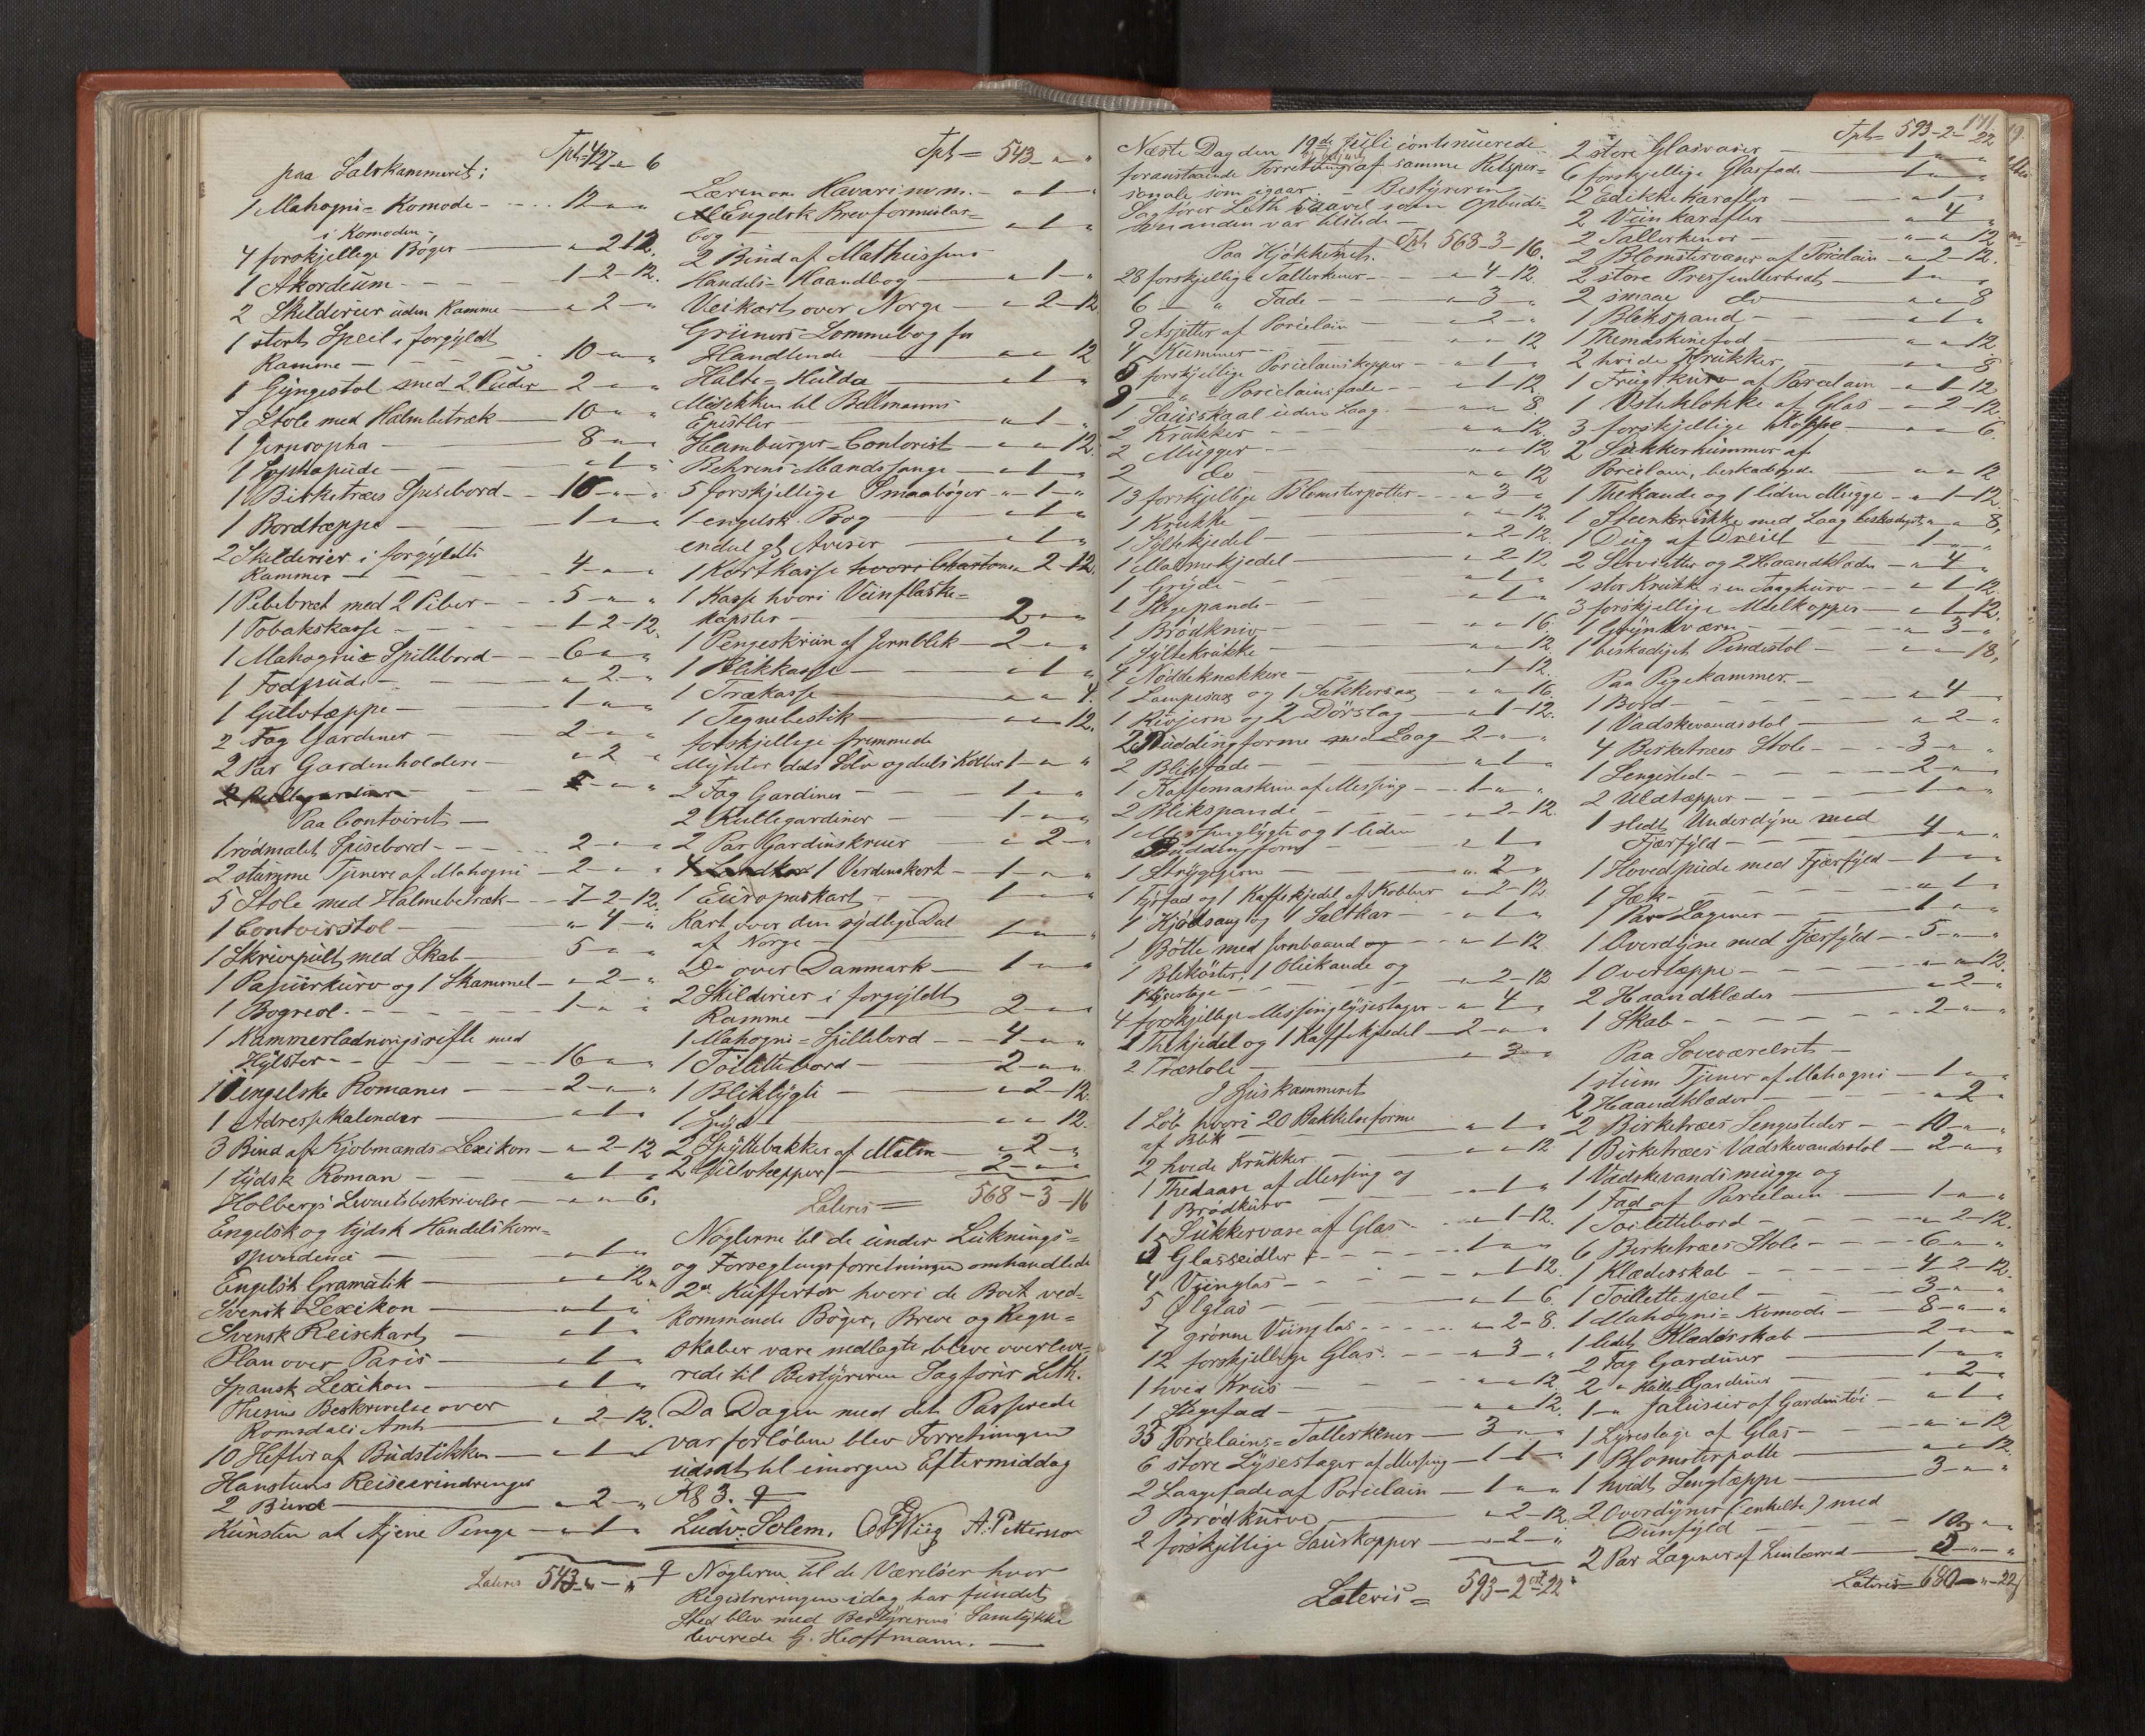 Tpt= 427 " 6
paa Salskammeret:
1 Mahogni=Komode - 12 - " - "
i Komoden:
4 forskjellige Bøger - " 2 12.
1 Akordeum - 1 - 2 - 12.
2 Skilderier uden Ramme - " 2 - "
1 stort Speil i forgyldt
Ramme - 10 - " - "
1 Gyngestol med 2 Puder - 2 - " - "
7 Stole med Halmbetræk - 10 - " - "
1 Jernsopha - 8 - " - "
1 Sophapude - " - 1 - "
1 Birketræes Spisebord - 10 - " - "
1 Bordtæppe - 1 - " - "
2 Skilderier i forgyldte
Rammer - 4 - " - "
1 Pibebræt med 2 Piber - 5 - " - "
1 Tobakskasse - 1 - 2 - 12.
1 Mahogni= Spillebord - 6 - " - "
1 Fodpude - " - 2 - "
1 Gulvtæppe - 1 - " - "
2 Fag Gardiner - 2 - " - "
2 Par Gardinholdere - " - 2 - "
2 Rullegardiner
Paa Contoiret -
1 rødmalet Spisebord - 2 - " - "
2 stumme Tjenere af Mahogni - 2 - " - "
5 Stole med Halmebetræk - 7 - 2 - 12.
1 Contoirstol - " - 4 - "
1 Skrivepult med Skab - 5 - " - "
1 Papiirkurv og 1 Skammel - " - 2 - "
1 Bogreol - 1 - " - "
1 Kammerladningsrifle med
Hylster - 16 - " - "
10 engelske Romaner - 2 - " - "
1 Adressekalender - " - 1 - "
3 Bind af Kjøbmands-Lexikon - " - 2 - 12
1 tydsk Roman - " - 1 - "
Holbergs Levnetsbeskrivelse - " - " 6.
Engelsk og tydsk Handelskorre=
spondence - " - 1 - "
Engelsk Gramatik - " - " 12.
Svensk Lexikon - " - 1 - "
Svensk Reisekart - " - 1 - "
Plan over Paris - " - 1 - "
Spansk Lexikon - " - 1 - "
Thesins Beskrivelse over
Romsdals Amt - " - 2 - 12.
10 Hefter af Budstikken - " - 1 - "
Hanstens Reiseerindringer
2 Bind - " - 2 - "
Kunsten at tjene Penge - " - 1 - "
Lateris 543 - " - "
Tpt= 543 - " "
Læren om Havari m.m. - " - 1 - "
Engelsk Brevformular=
bog - " - 1 - "
2 Bind af Mathiesens
Handels-Haandbog - " - 1 - "
Veikart over Norge - " - 2 - 12
Grüners Lommebog for
Handlende - " " 12
Halte=Hulda - " - 1 - "
Musikken til Bellmanns
Epistler - " - 1 - "
Hamburger-Contorist - " " 12.
Behrens Mandssange - " - 1 - "
5 forskjellige Smaabøger - " - 1 - "
1 engelsk Bog - " - 1 - "
endel gl. Aviser - " - 1 - "
1 Kortkasse - " 2 - 12.
1 Kasse hvori Viinflaske=
kapsler - 2 - " - "
1 Pengeskriin af Jernblik - 2 - " - "
1 Blikkasse - " - 1 - "
1 Trækasse - " " 4.
1 Tegnebestik - " " 12.
forskjellige fremmede
Mynter dels Sølv og dels Kobber 1 - " - "
2 Fag Gardiner - 1 - " - "
2 Rullegardiner - 1 - " - "
2 Par Gardinskruer - " - 2 - "
1 Verdenskort - 1 - " - "
1 Europaskart - 1 - " - "
Kart over den sydlige Del
af Norge - 1 - " - "
Do over Danmark - 1 - " - "
2 Skilderier i forgyldt
Ramme - 2 - " - "
1 Mahogni=Spillebord - 4 - " - "
1 Toilettebord - 2 - " - "
1 Bliklygte - " - 2 - 12.
1 Spyd - " " 12.
2 Spyttebakker af Malm - " - 2 - "
2 Gulvtæpper - 2 - " - "
Lateris= 568 - 3 - 16
Nøglerne til de under Luknings=
og Forseglingsforretningen omhandlede
2de Kufferter hvori de Boet ved=
kommende Bøger, Breve og Regn=
skaber vare nedlagte, bleve overleve=
rede til Bestyreren Sagfører Leth.
Da Dagen med det Passerede
var forløben blev Forretningen
udsat til imorgen Eftermiddag
Kl 3.
Ludv. Solem. A. Petterson
Nøglerne til de Værelser hvor
Registreringen idag har fundet
Sted blev med Bestyrerens Samtykke
leverede G. Hoffmann. -
171
Næste Dag den 19de Juli continuerede
foranstaaende Forretning af samme Retsper=
sonale som igaar. - Bestyreren
Sagfører Leth saavel som Opbuds=
manden var tilstede -
Paa Kjøkkenet. Tpt 568 - 3 - 16.
28 forskjellige Tallerkener - " - 4 - 12.
6 - " Fade - " - 3 - "
9 Asjetter af Porcelain - " - 2 - "
4 Kummer - " " 12
8 forskjellige Porcelainskopper - " - 1 - "
9 - " Porcelainsfade - " - 1 - 12.
1 Sausskaal uden Laag - " " 8.
2 Krukker - " " 12.
2 Mugger - " " 12
2 do - " " 12
13 forskjellige Blomsterpotter - " - 3 - "
1 Krukke - " " 12.
1 Syltekjedel - " - 2 - 12.
1 Malmkjedel - " - 2 - 12
1 Gryde - " - 1 - "
1 Stegepande - " - 1 - "
1 Brødkniv - " " 16.
1 Syltekrukke - " " 12.
4 Nøddeknækkere - " - 1 - 12.
1 Lampesax og 1 Sukkersax - " " 16.
1 Rivjern og 2 Dørslag - " - 1 - 12.
2 Puddingforme med Laag 2 - " - "
2 Blikfade - " - 1 - "
1 Kaffemaskine af Messing - 1 - " - "
2 Blikspande - " - 2 - 12.
1 Messinglygte og 1 liden
Buddingform - " - 1 - "
1 Strygejern - " 2 - "
1 Fyrfad og 1 Kaffekjedel af Kobber " - 2 - 12.
1 Kjødsaug og 4 Saltkar - " - 1 - "
1 Bøtte med Jernbaand og - " - 1 - 12.
1 Blikøster, 1 Oliekande og
1 Lysestage - " - 2 - 12
4 forskjellige Messinglysestager - " - 4 - "
1 Thekjedel og 1 Kaffekjedel - 2 - " - "
2 Træstole - " - 3 - "
I Spiskammeret
1 Løb hvori 20 Bakkelseforme
af Blik - " - 1 - "
2 hvide Krukker - " " 12
1 Thedaase af Messing og
1 Brødkurv - " - 1 - "
1 Sukkervase af Glas - " - 1 - 12.
3 Glasseidler - 1 - " - "
4 Viinglas - " - 1 - 12.
5 Ølglas - " - 1 - 6.
7 grønne Viinglas - " - 2 - 8.
12 forskjellige Glas - " - 3 - "
1 hvid Kruus - " " 12
1 Stegefad - " " 12.
35 Porcelains=Tallerkener - 3 - " - "
6 store Lysestager af Messing - 1 - 1 - "
2 Laagefade af Porcelain - 1 - " - "
3 Brødkurve - " - 2 - 12
2 forskjellige Sauskopper - " - 2 - "
Lateris= 593 - 2 ort 22
Tpt= 593 - 2 - 22
2 store Glasvaser - 1 " - "
6 forskjellige Glasfade - 1 " - "
2 Edikkekarafler - " - 1 - "
2 Viinkarafler - " 4 "
2 Tallerkener - " - " 12
2 Blomstervaser af Porcelain - " - 2 - 12.
2 store Pressenterbræt - 1 - " "
2 smaae do - " - " 8
1 Blikspand - " - 1 - "
1 Themaskinefod - " " 12
2 hvide Krukker - " " 8
1 Frugtkurv af Porcelain - " - 1 - 12.
1 Osteklokke af Glas - " - 2 - 12.
3 forskjellige Koppe - " " 6.
2 Sukkerkummer af
Porcelain, beskadigede - " " 12
1 Thekande og 1 liden Mugge - " - 1 - 12.
1 Steenkrukke med Laag beskadiget " " 8.
1 Dug af Dreiel - 1 - " "
2 Servietter og 2 Haandklæder - " 4 "
1 stor Krukke i en Taagkurv - " - 1 - 12.
3 forskjellige Melkopper - " - 1 - 12.
1 Grynkværn - " 3 - "
1 beskadiget Pindestol - " " 18.
Paa Pigekammer. -
1 Bord - " 4 - "
1 Vadskevandsstol - " - 2 - "
4 Birketræes Stole - 3 - " - "
1 Sengested - 2 - " - "
2 Uldtæpper - 1 - " - "
1 slidt Underdyne med
Fjærfyld - 4 - " - "
1 Hovedpude med Fjærfyld - 1 - " - "
1 Sæk - " - 1 - "
1 Par Lagener - 1 - " - "
1 Overdyne med Fjærfyld - 5 - " - "
1 Overtæppe - " - " 12.
2 Haandklæder - " - 2 - "
1 Skab - 2 - " - "
Paa Soveværelset -
1 stum Tjener af Mahogni - 1 - " - "
2 Haandklæder - " - 2 - "
2 Birketræes Sengesteder - 10 - " - "
1 Birketræes Vadskevandsstol - 2 - " - "
1 Vadskevandsmugge og
1 Fad af Porcelain - 1 - " - "
1 Toilettebord - " - 2 - 12.
6 Birketræes Stole - 6 - " - "
1 Klædesskab - 4 - 2 - 12.
1 Toilettespeil - 3 - " - "
1 Mahogni=Komode - 8 - " - "
1 lidet Klædesskab - 2 - " - "
2 Fag Gardiner - 1 - " - "
2 " Rulle Gardiner - " - 2 - "
1 - " Jalusier af Gardintøi - " - 1 - "
1 Lysestage af Glas - " - " 12
1 Blomsterpotte - " - " 12.
1 hvidt Sengtæppe - 3 - " - "
2 Overdyner (enkelte) med
Dunfyld - 10 - " - "
2 Par Lagener af Linlærred - 3 - " - "
Lateris= 680 - " - 22